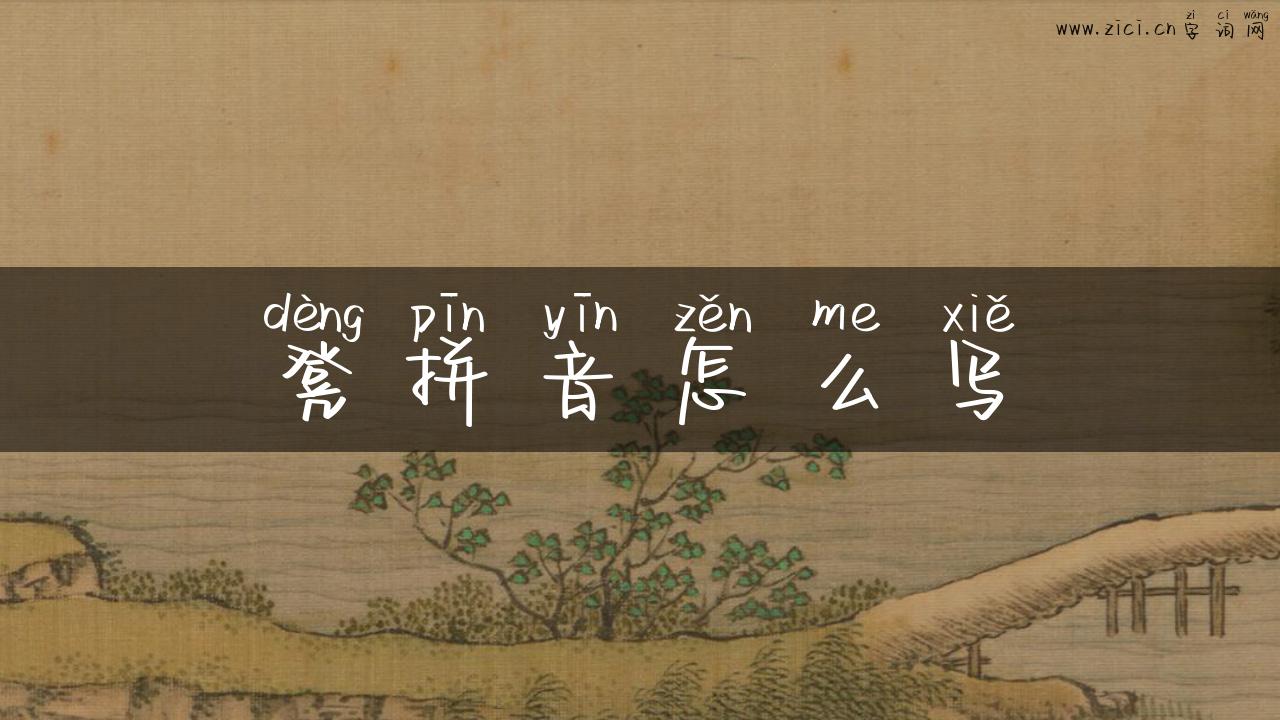 zì cí wǎng
www.zici.cn 字 词 网
dèng pīn yīn zěn me xiě
凳 拼 音 怎 么 写